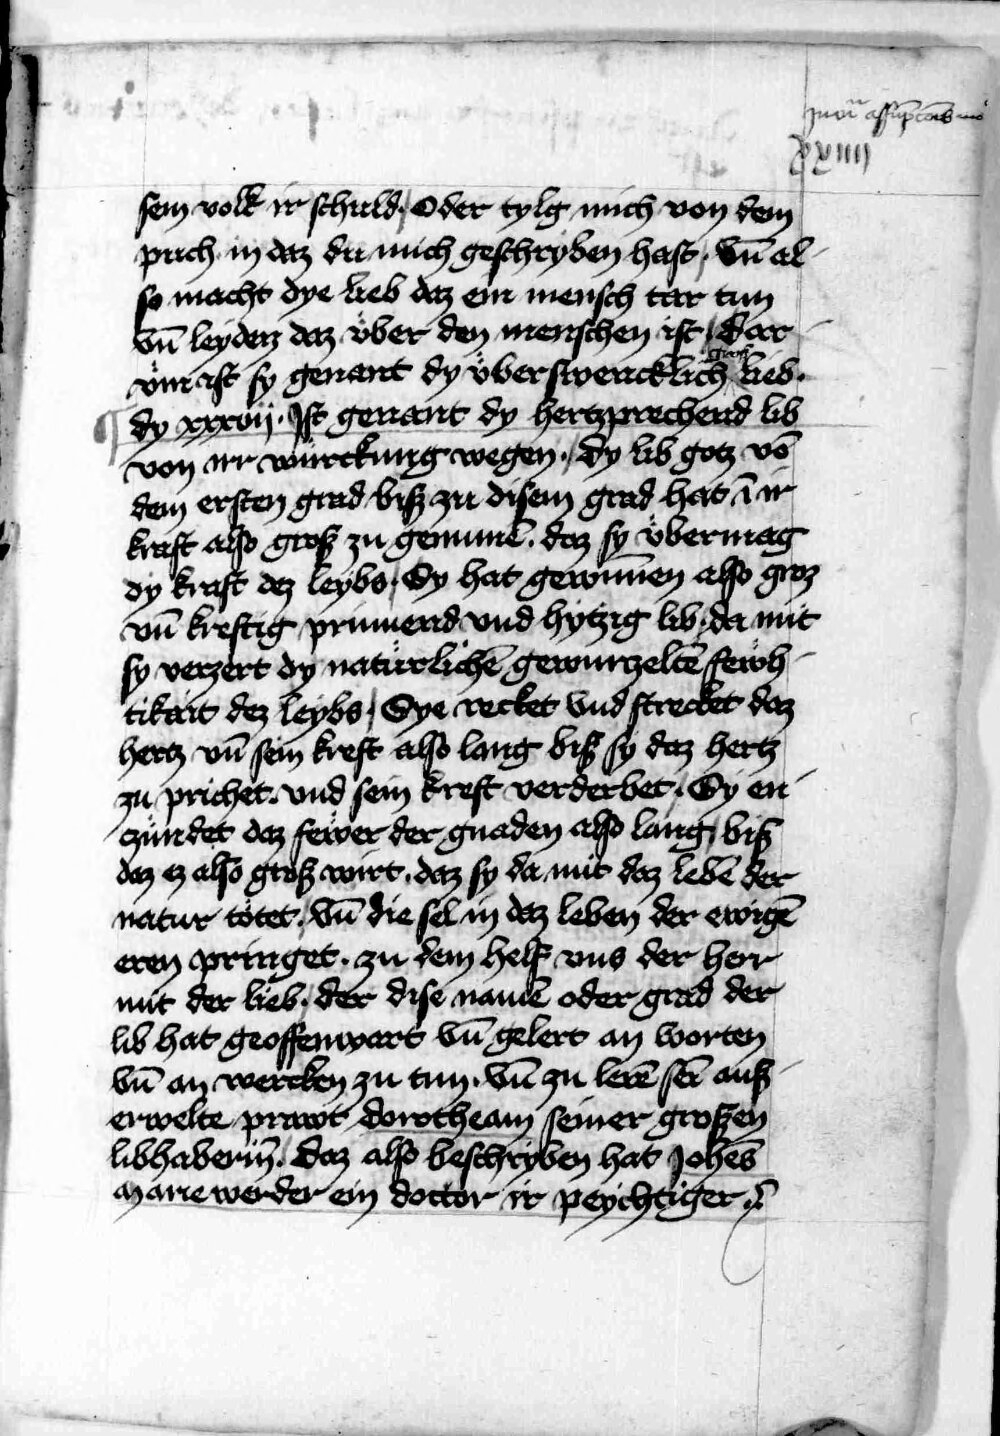 xxiiii
sem volk ir schuld. Oder tylg mich von dem
puch in daz du mich geschryben hast, vn̄ al-
so macht dye lieb daz ein mensch tar tun
vn̄ leyden daz vͤber den menschen ist, dar-
vm̈ ist sy genant dy vͤberswencklich groß lieb.
dy xxxvij. Ist genant dy hertzprechend lib
von irr würckung wegen. dy lib gotz vō
dem ersten grad biß zu disem grad hat ī ir
kraft also groß zu genumē. daz sy vͤbermag
dy kraft dez leybs. Sy hat gewunnen also groz
vn̄ kreftig prinnend vnd hytzig lib. da mit
sy verzert dy natürlichē gewurtzeltē fewh-
tikait dez leybs, Sye recket vnd strecket daz
hertz vn̄ sein kreft also lang biß sy daz hertz
zu prichet. vnd sein kreft verderbet. Sy en-
czündet daz fewer der gnaden also lang, biß
daz ez also groß wirt. daz sy da mit daz lebē der
natur tötet, vn̄ die sel in daz leben der ewigē
eren pringet. zu dem helf vns der herr
mit der lieb. der dise namē oder grad der
lib hat geoffenwart vn̄ gelert an worten
vn̄ an wercken zu tun. vn̄ zu lerē sein auß-
erwelte prawt dorotheam seiner großen
libhaberin̄. daz also beschryben hat Johēs
Marie werder ein doctor ir peychtiger.